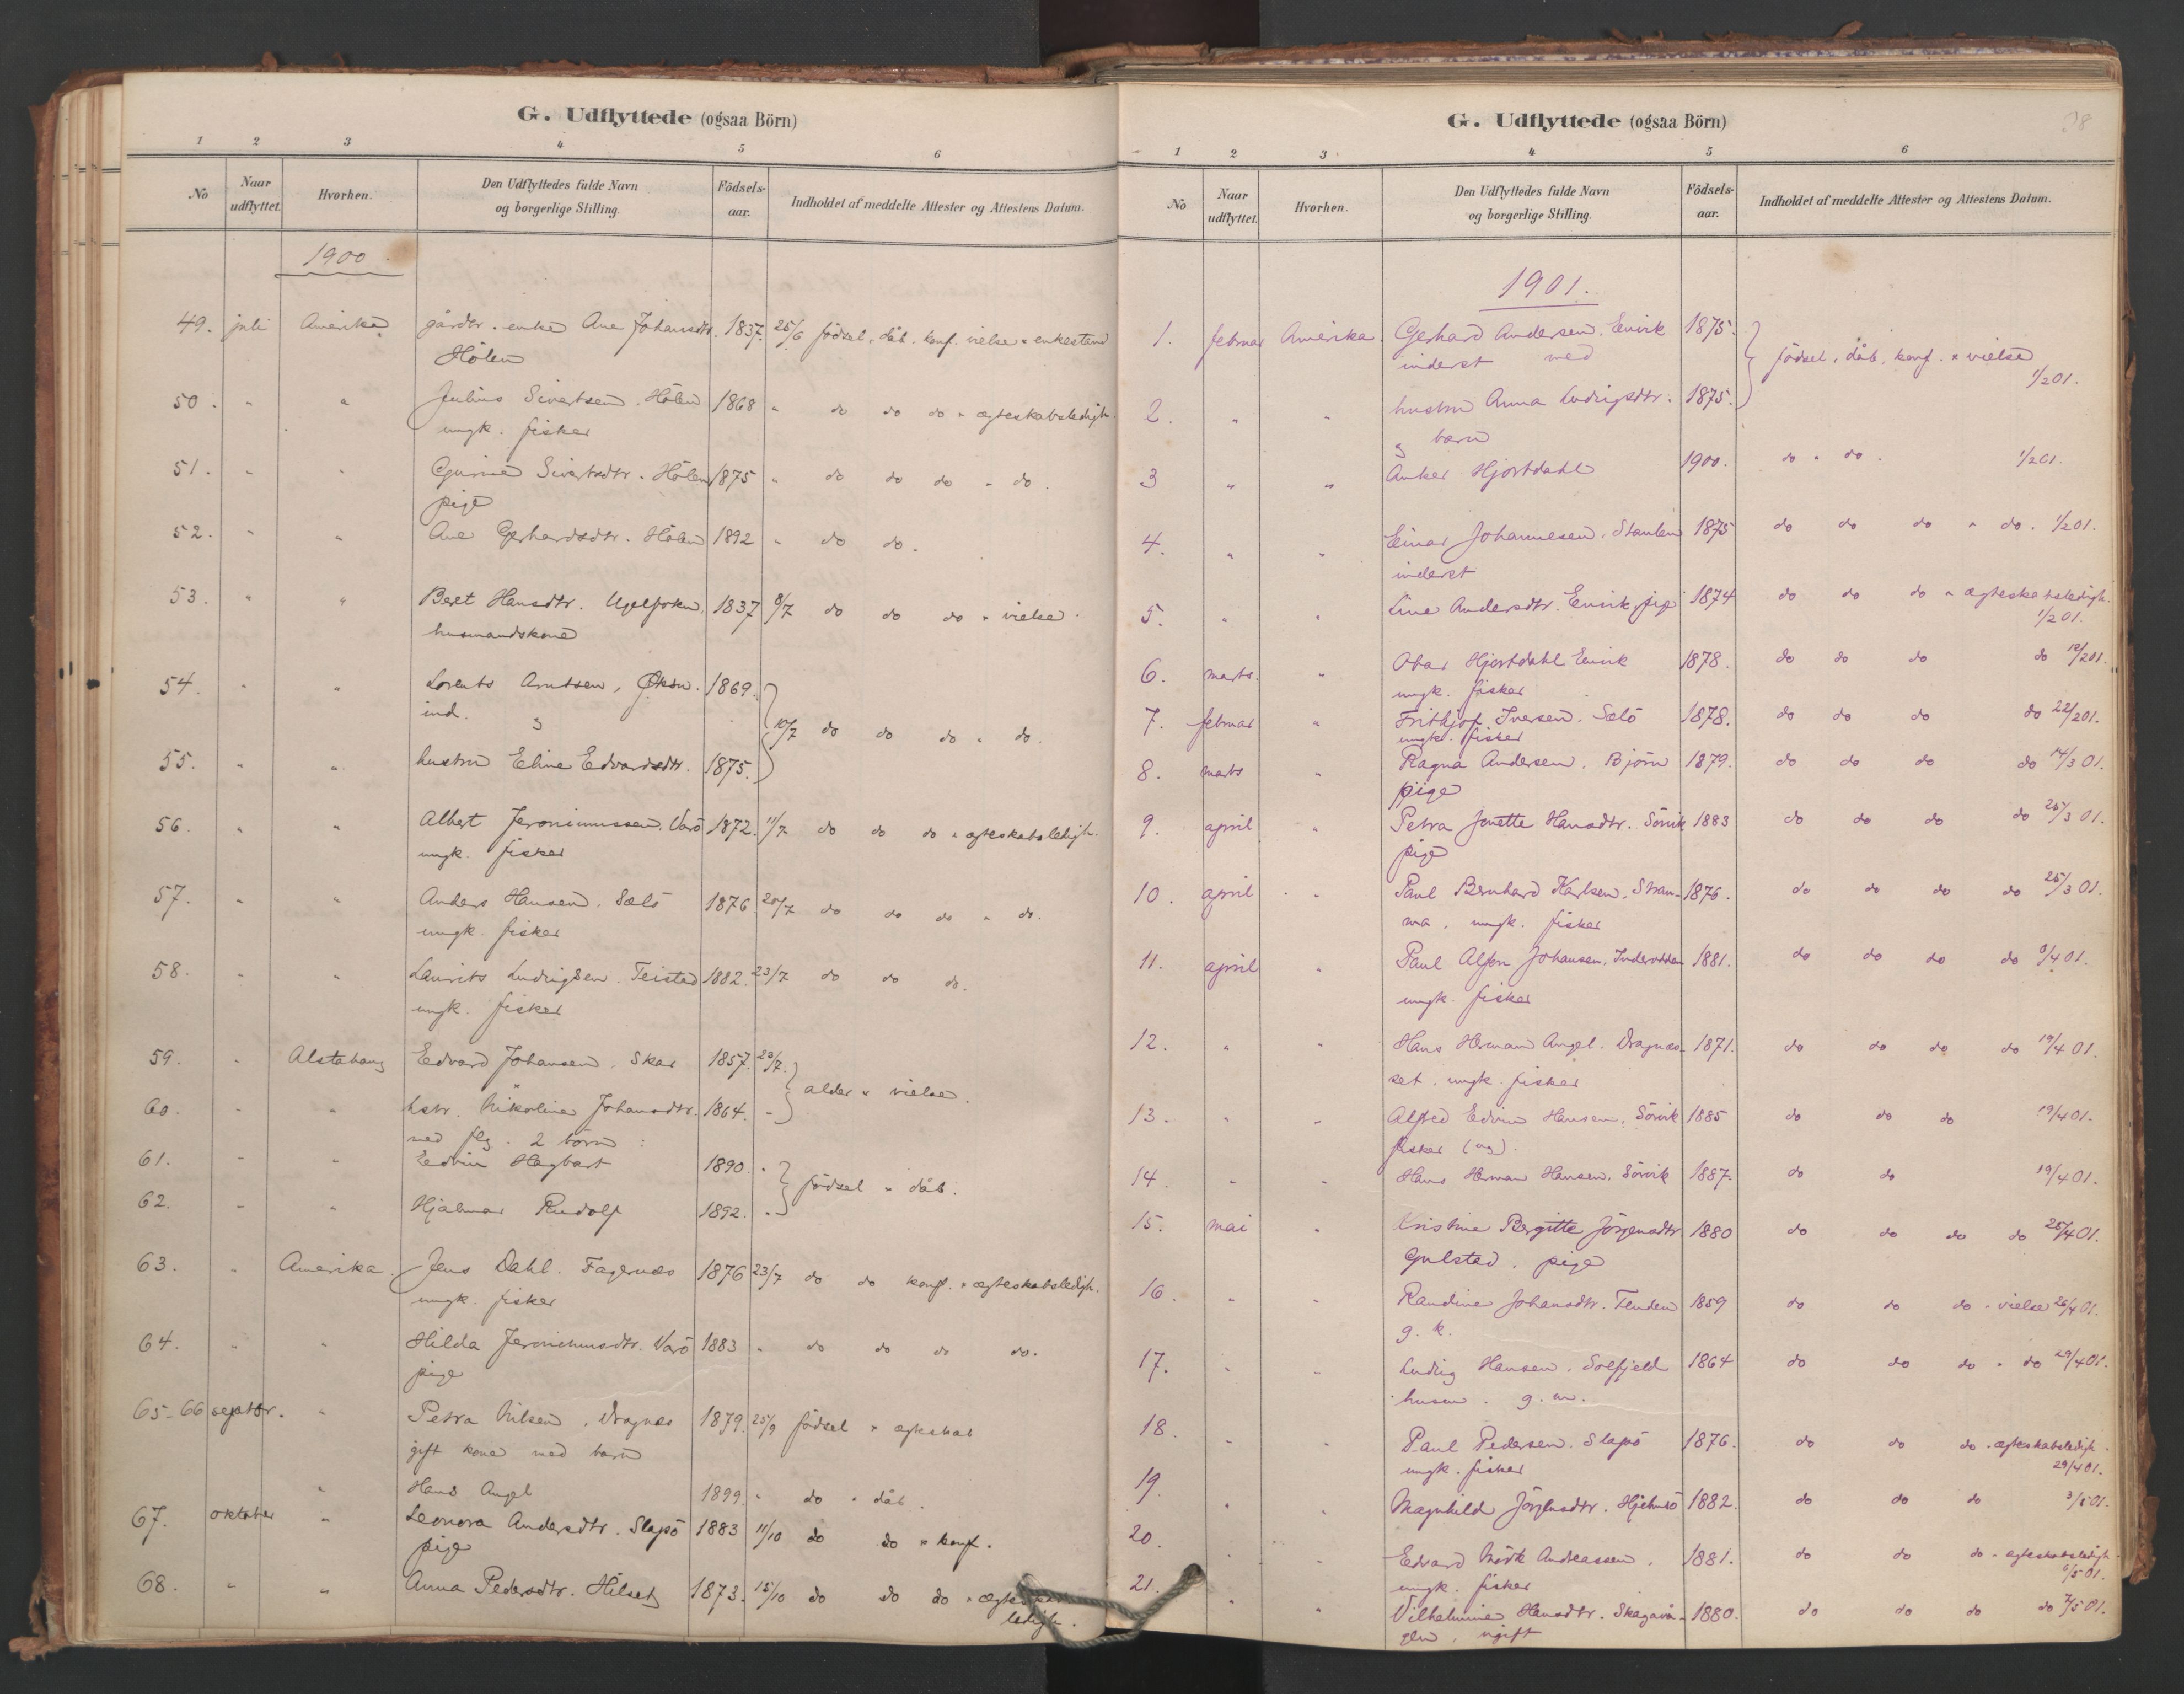 G. Udflyttede (ogsaa Börn)
1 2 3 4 5 6
No Naar udflyttet. Hvorhen. Den Udflyttedes fulde Navn og borgerlige Stilling. Födsels-aar. Indholdet af meddelte Attester og Attestens Datum.
1900
49. juli Amerika gårdbr. enke Ane Johansdtr. 1837. 25/6 födsel, dåb, konf. vielse & enkestand
Hölen
50. " " Julius Sivertsen. Hölen 1868 " do do do & ægteskabsledigh.
ungk. fisker
51. " " Gurine Sivertsdtr. Hölen 1875 " do do do " do.
pige
52. " " Ane Gerhardsdtr. Hölen 1892 " do do.
53. " " Beret Hansdtr. 1837 8/7 do do do & vielse.
husmandskone
54. " " Lorents Arntsen, Öksn. 1869.
ind. &
10/7 do do do " do.
55. " " hustru Eline Edvardsdtr. 1875.
56. " " Albert Jeronimussen. Varö 1872. 11/7 do do do & ægteskabsledigh.
ungk. fisker
57. " " Anders Hansen. Sælö 1876 20/7 do do do " do.
ungk. fisker
58. " " Laurits Ludvigsen. Teistad 1882. 23/7 do do do.
ungk. fisker
59. " Alstahaug Edvard Johansen. Skar 1857. 23/7.
alder & vielse.
60. " " hstr. Nikoline Johansdtr. 1864. "
med flg. 2 börn:
61. " " Edvin Hagbart 1890. "
födsel & dåb.
62. " " Hjalmar Rudolf 1892. "
63. " Amerika Jens Dahl. Fagernæs 1876 23/7 do do konf. & ægteskabsledigh.
ungk. fisker
64. " " Hilda Jeronimusdtr. Varö 1883 " do do do do.
pige
65-66 septbr. " Petra Nilsen. Dragnæs 1879. 25/9 födsel & ægteskab
gift kone med barn
" Hans Angel 1899. " do & dåb.
67. oktober " Leonora Andersdtr. Slapö 1883 11/10 do do & konf.
pige
68. " " Anna Pedersdtr. Hilset 1873. 15/10 do do do &
ledigh.
G. Udflyttede (ogsaa Börn) 98
1 2 3 4 5 6
No Naar udflyttet. Hvorhen. Den Udflyttedes fulde Navn og borgerlige Stilling. Födsels-aar. Indholdet af meddelte Attester og Attestens Datum.
1901.
1. februar Amerika. Gerhard Andersen. Einvik 1875.
inderst med
födsel, dåb, konf. & vielse
1/2 01.
2. " " hustru Anna Ludvigsdtr. 1875.
& barn
3 " " Anker Hjortdahl 1900. do & do. 1/2 01.
4. " " Einar Johannesen. 1875 do do do & do. 1/2 01.
inderst
5. " " Line Andersdtr. Einvik, pige 1874 do do do & ægteskabsledigh.
1/2 01.
6. marts. " Hjortdahl Einvik 1878. do do do do 18/2 01.
ungk. fisker
7. februar " Frithjof Iversen. Sælö 1878. do do do do 22/2 01.
ungk. fisker
8. marts " Ragna Andersen. Björn 1879. do do do do 14/3 01.
pige
9. april " Petra Jonette Hansdtr. Sörvik 1883 do do do do 25/3 01.
pige
10. april " Paul Bernhard Karlsen. Stran- 1876. do do do do 25/3 01.
na. ungk. fisker
11. april " Paul Alfon Johansen. 1881. do do do do 8/4 01.
ungk. fisker
12. " " Hans Herman Angel. Dragnæs- 1871. do do do do 19/4 01.
set. ungk. fisker
13. " " Alfred Edvin Hansen. Sörvik 1885 do do do 19/4 01.
fisker (ug).
14 " " Hans Herman Hansen. Sörvik 1887. do do 19/4 01.
15. mai " Kristine Bergitte Jörgensdtr. 1880 do do do do 25/4 01.
Gulstad. pige
16. " " Randine Johansdtr. Tenden 1859 do do do & vielse 26/4 01.
g. k.
17. " " Ludvig Hansen. Solfjeld 1864 do do do & do 29/4 01.
husm. g. m.
18. " " Paul Pedersen. Slapö 1876. do do do & ægteskabsledigh.
ungk. fisker 29/4 01.
19. " " Magnhild Jörgensdtr. Hjelmsö 1882. do do do 3/5 01.
20. " " Edvard Mörk Andreassen. 1881. do do do & ægteskabsledigh.
ungk. fisker 6/5 01.
21. " " Vilhelmine Hansdtr. Skagavå- 1880. do do do do 7/5 01.
gen. ugift